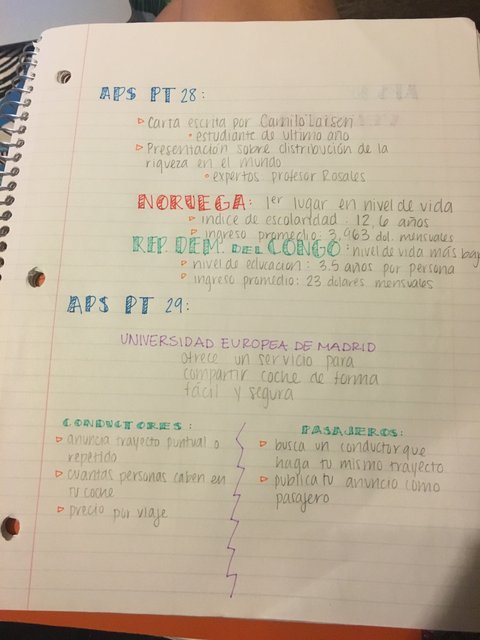 APS PT 28:
Carta escrita por Camilo Larsen
• estudiante de ultimo año
Presentacion sobre distribución de la
riqueza en el mundo
• expertos profesor Rosales
NORUEGA: 1er lugar en nivel de vida
indice de escolaridad: 12,6 años
ingreso promedio: 3,963 dol. mensuales
REP. DEM. DEL CONGO: nivel de vida más baj
nivel de educacion: 3.5 años por persona
ingreso promedio: 23 dolares mensuales
APS PT 29:
UNIVERSIDAD EUROPEA DE MADRID
ofrece un servicio para
compartir coche de forma
fácil y segura
CONDUCTORES:
anuncia trayecto puntual o
repetido
cuantas personas caben en
tu coche
precio por viaje
PASAJEROS:
busca un conductor que
haga tu mismo trayecto
publica tu anuncio como
pasajero